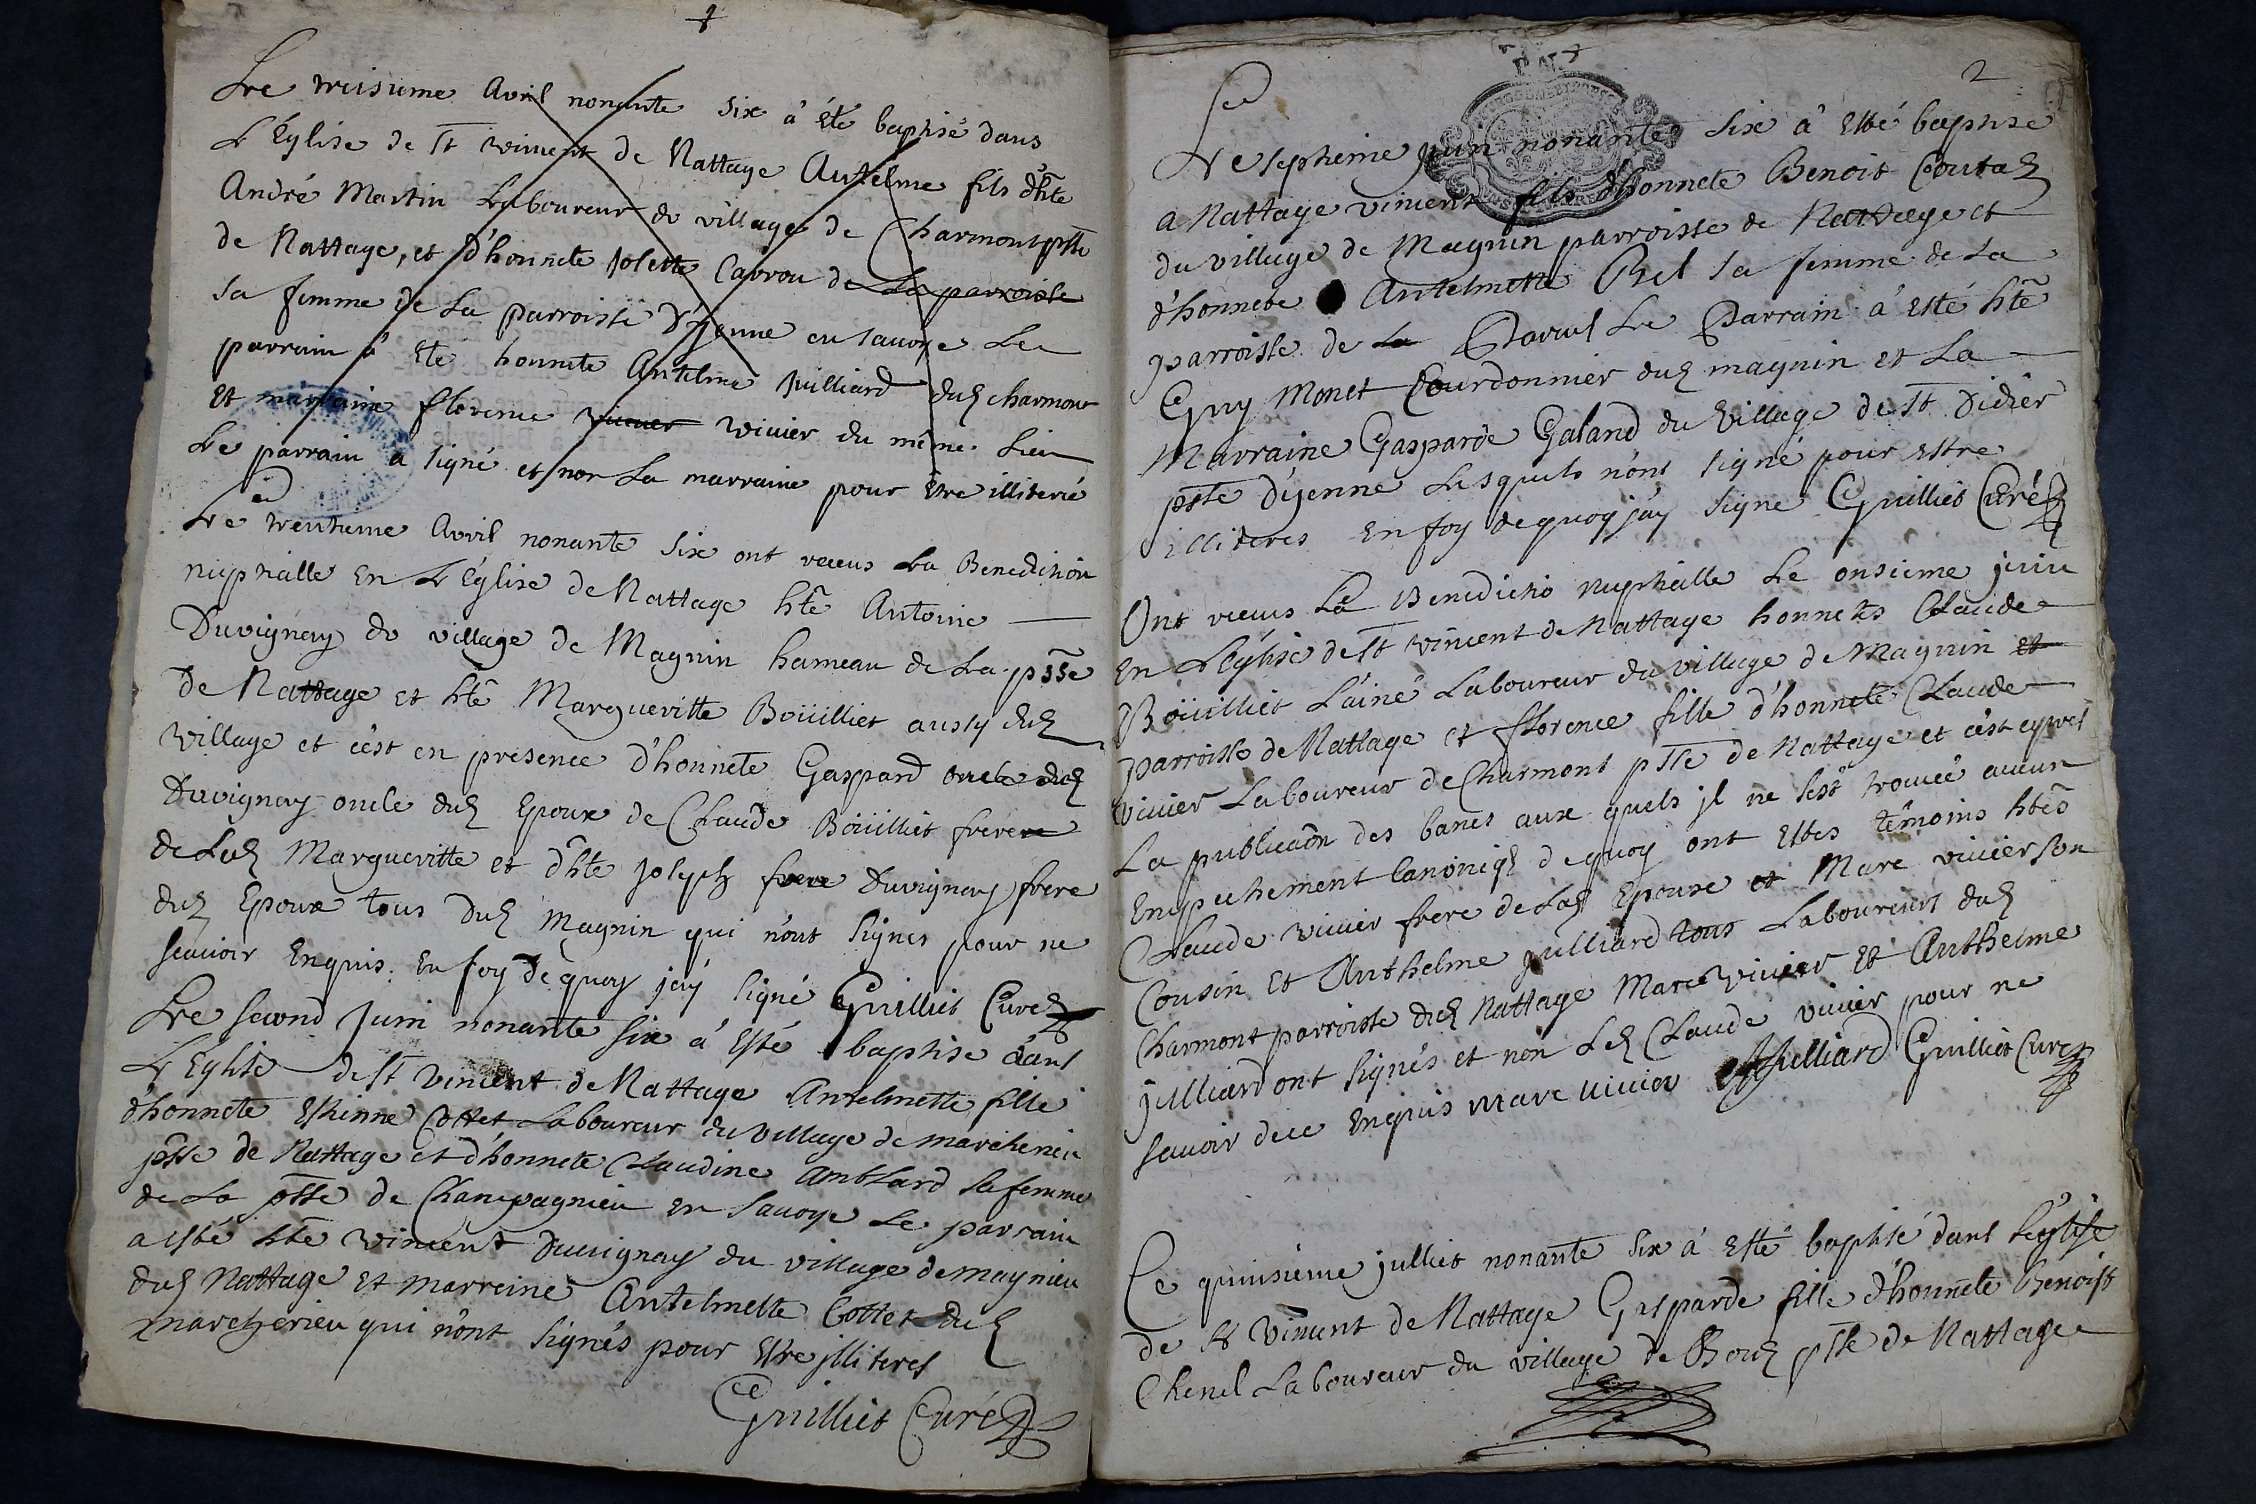 Le treisieme Avril nonante six à été baptisé dans
L'Eglise de St vincent de Nattage Antelme fils d'hte
André Martin Laboureur do village de Charmont psse
de Nattage, et d'honnete Josette Carrou de La parroisse
sa femme de La parroisse d'yenne en savoye Le
parrain à été honnete Antelme Juilliard dud charmont
et marraine florence vivier vivier du même Lieu
Le parrain a signé et non La marraine pour être illiteré
Le trentieme Avril nonante six ont receus La Benediction
nuptialle en L'Eglise de Nattage hte Antoine
Duvignay do village de Magnin hameau de La psse
de Nattage et hte Margueritte Boüilliet aussy dud
village et c'est en presence d'honnete Gaspard oncle dud
Duvignay oncle dud Epoux de Claude Boüilliet frere
de Lad Margueritte et d'hte joseph frere Duvignay frere
dud Epoux tous dud Magnin qui n'ont signes pour ne
scavoir Enquis. En foy de quoy j'ay signé Guilliet Curé
Le second Juin nonante six à esté baptise dans
L'Eglise de St vincent de Nattage Antelmette fille
d'honnete Estienne Cottet Laboureur du village de marcherieu
psse de Nattage et d'honnete Claudine Amblard sa femme
de La psse de Champagnieu en Savoye Le parrain
a esté hte vincent Duvignay du village de magnieu
dud Nattage et marreine Antelmette Cottet dud
marcherieu qui n'ont signés pour estre jlliteres
Guilliet Curé
2
Le septieme juin nonante six à esté baptise
a Nattage vincent fils d'honnete Benoit Coutaz
du village de Magnin parroisse de Nattage et
d'honnete Antelmette Bel sa femme de La
parroisse de La Le Parrain à esté hte
Guy Monet Courdonnier dud magnin et La
Marraine Gasparde Galand du village de St Didier
psse d'yenne Lesquels n'ont signé pour estre
illiteres En foy de quoy j'ay signe Guilliet Curé
Ont receus La Benedictio nuptialle Le onsieme juin
En L'Eglise de St vincent de Nattage honnetes Claude
Boüilliet L'ainé Laboureur du village de Magnin et
parroisse de Nattage et florence fille d'honnete Claude
vivier Laboureur de Charmont psse de Nattage et c'est apres
La publicaon des bancs aux quels jl ne s'est trouvé aucun
Empechement Canoniq de quoy ont estes temoins htes
Claude vivier frere de Lad Epouse et Marc vivier son
Cousin Et Anthelme julliard tous Laboureurs dud
Charmont parroisse dud Nattage Marc vivier et Anthelme
julliard ont signés et non Led Claude vivier pour ne
scavoir de ce Enquis marc vivier A Julliard Guilliet Curé
Ce quinsieme julliet nonante six à esté baptisé dans L'eglise
de St vincent de Nattage Gasparde fille d'honnete Benoist
Chenel Laboureur du village de Bouz psse de Nattage